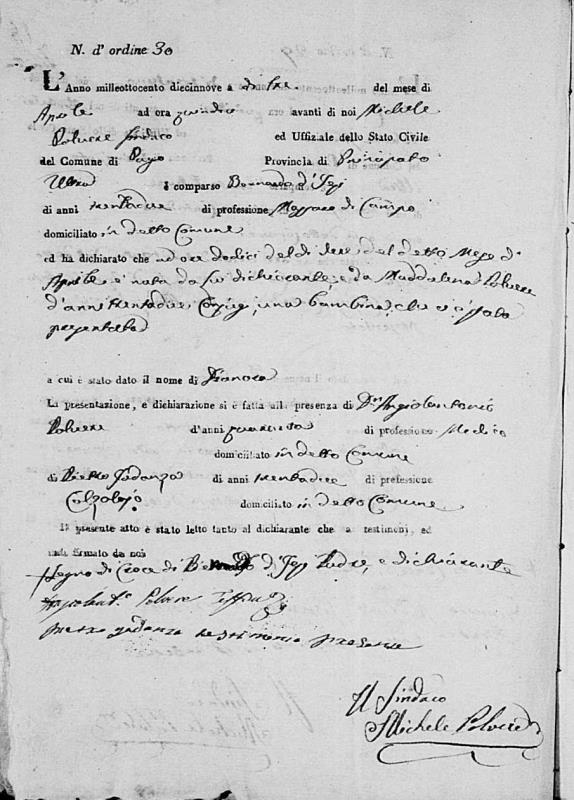 N. d' ordine 30
L'Anno milleottocento diecinnove a di tre del mese di
Aprile ad ora quindici avanti di noi Michele
Polvere Sindaco ed Uffiziale dello Stato Civile
del Comune di Pago Provincia di Principato
Ultra è comparso Bernardo d'
di anni trentadue di professione Massaro di Campo
domiciliato in detto Comune
ed ha dichiarato che ad ore dodici del dì tre del detto Mese d'
Aprile è nata da lui dichiarante e da Maddalena Polvere
d'anni trentadue Conjugi, una bambina che ci è stata
presentata
a cui è stato dato il nome di Eleonora
La presentazione, e dichiarazione si è fatta alla presenza di Dn Angiolantonio
Polvere d'anni quaranta di professione Medico
domiciliato in detto Comune
di Pietro Iadanza di anni trentadue di professione
Calzolajo domiciliato in detto Comune
Il presente atto è stato letto tanto al dichiarante che a testimonj, ed
indi firmato da noi
Segno di Croce di d' Padre, e dichiarante
Polvere
pietro iadanza testimonio presente
Il Sindaco
Michele Polvere